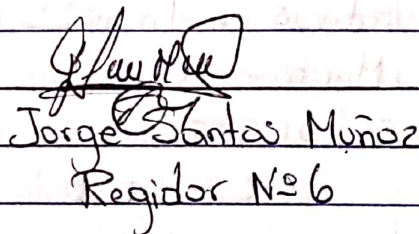 Jorge Santos Muñoz
Regidor Nº 6